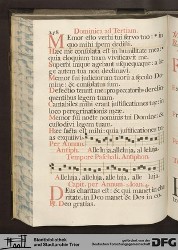 Dominica ad Tertiam.
MEmor esto verbi tui servo tuo: in
quo mihi spem dedisti.
Hæc me consolata est in humilitate mea:
quia eloquium tuum vivificavit me.
Superbi inique agebant usquequaque: a le-
ge autem tua non declinavi.
Memor fui judiciorum tuorum a sæculo Do-
mine: & consolatus sum.
Defectio tenuit me: pro peccatoribus dereli-
quentibus legem tuam.
Cantabiles mihi erant justificationes tuæ: in
loco peregrinationis meæ.
Memor fui nocte nominis tui Domine: &
custodivi legem tuam.
Hæc facta est mihi: quia justificationes tu-
as exquisivi.
Per Annum
Antiph. Alleluia, alleluia, alle luia.
Tempore Paschali. Antiphon.
Alleluia, alleluia, alle luia.
Capit. per Annum
DEus charitas est: & qui manet in cha-
ritate, in Deo manet & Deus in eo.
Deo gratias.
Stadtbibliothek
und Stadtarchiv Trier
gefördert von der
Deutschen Forschungsgemeinschaft
DFG